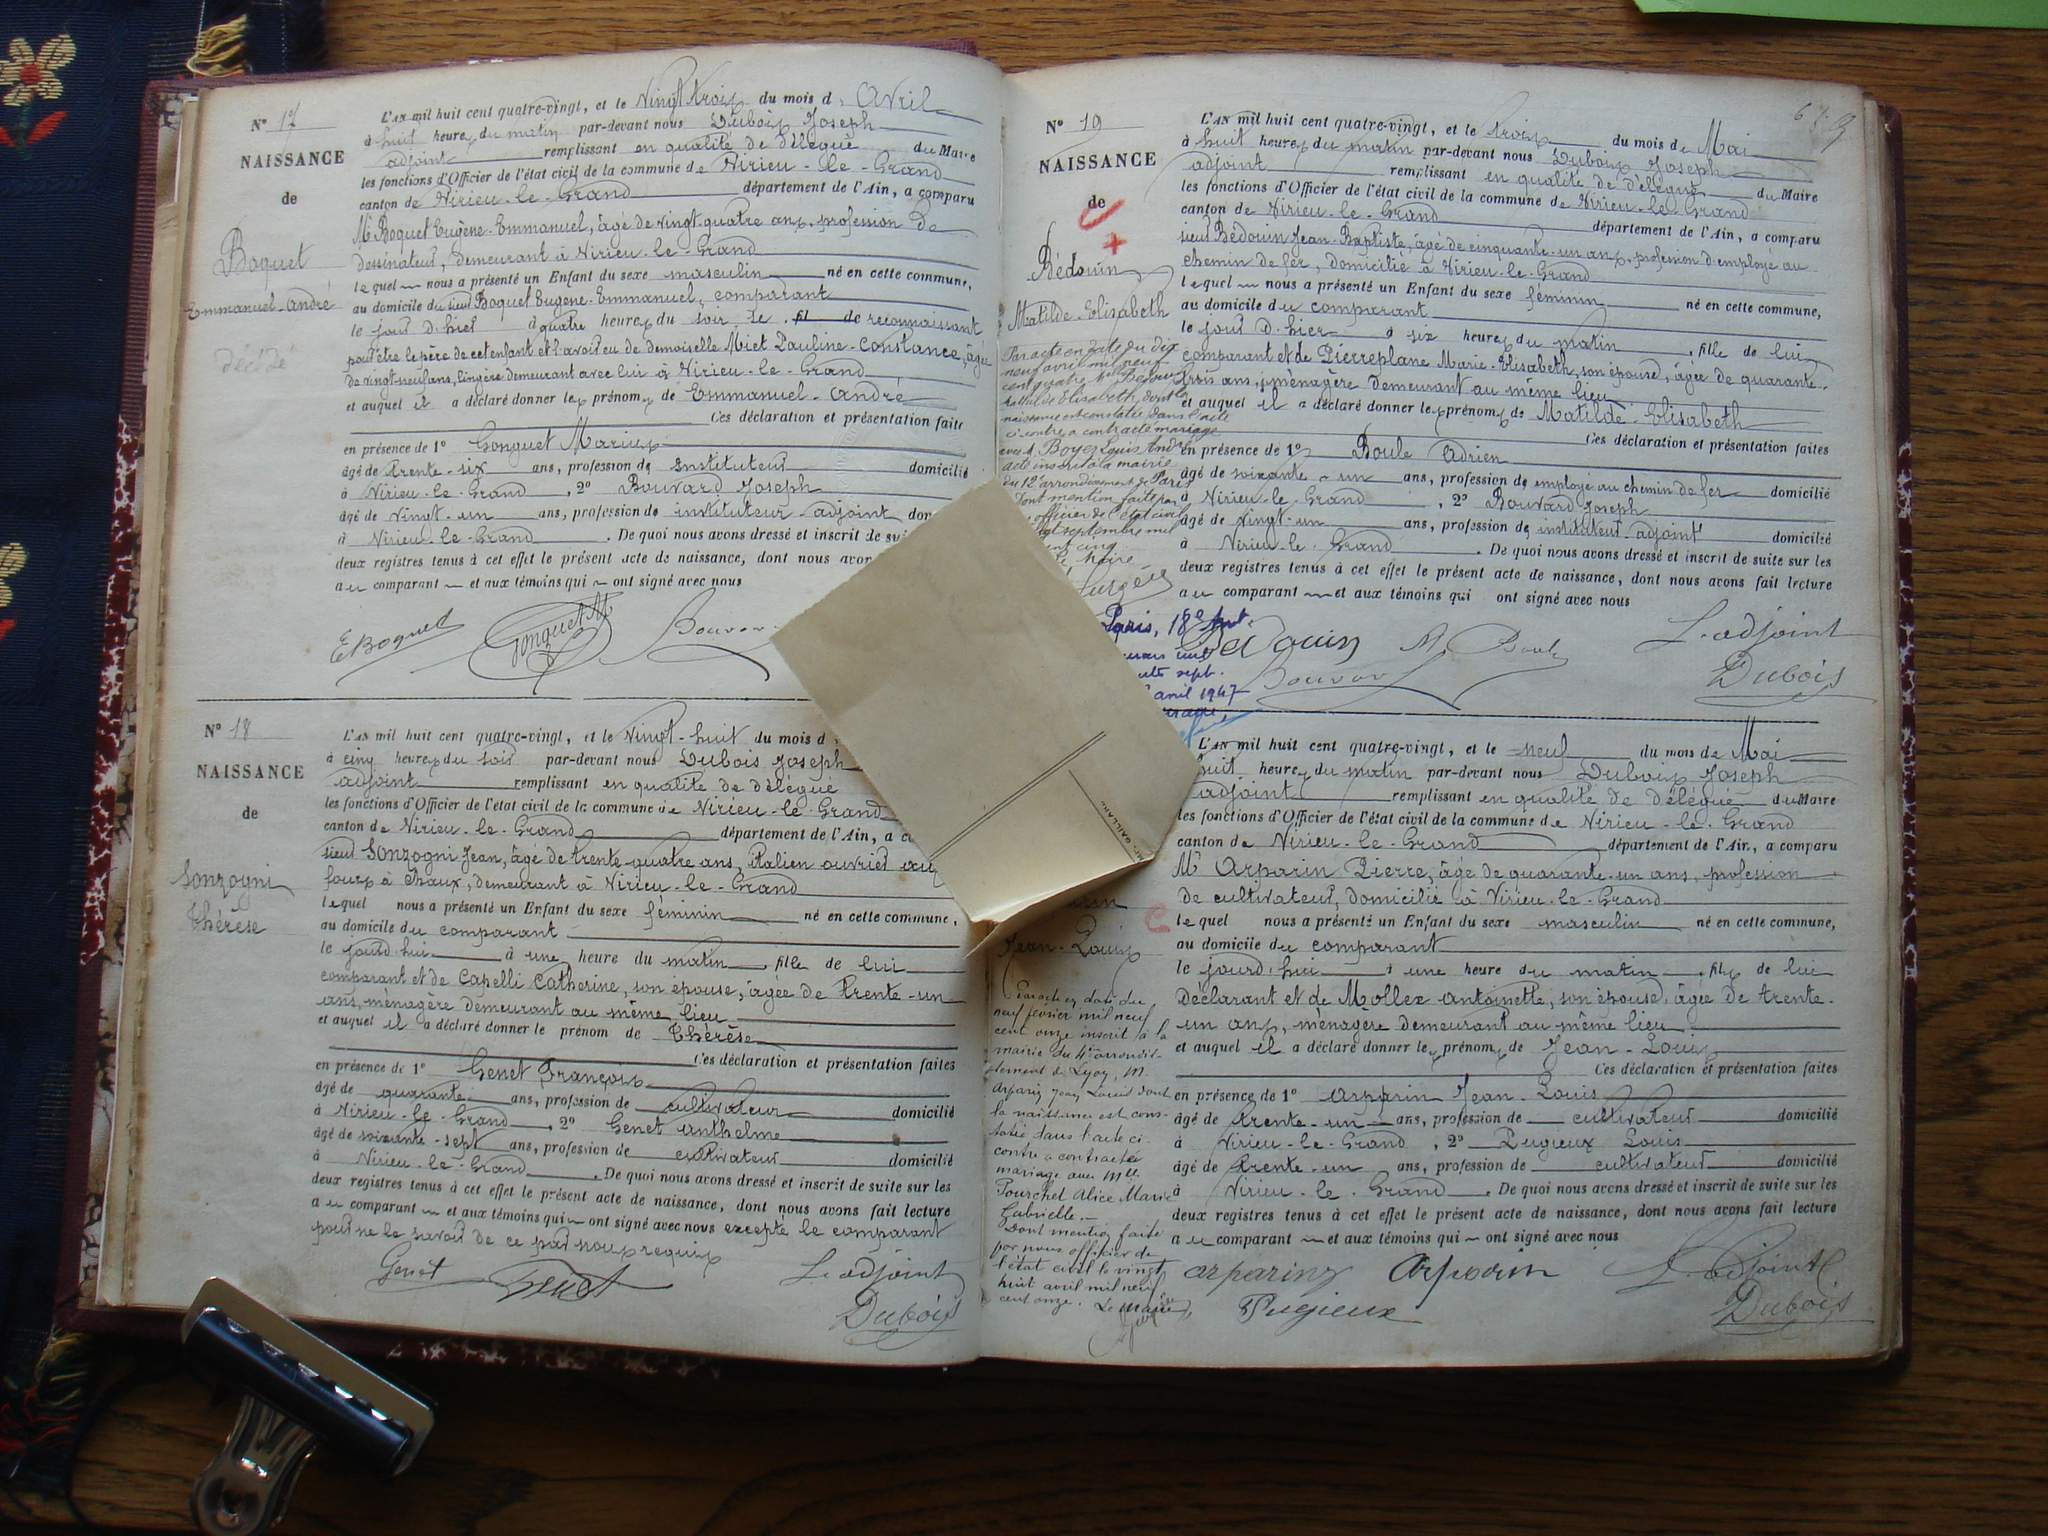 N° 17
NAISSANCE
de
Boquet
Emmanuel-André
décédé
L'AN mil huit cent quatre-vingt, et le Vingt trois du mois d'Avril
à huit heures du matin par-devant nous Dubois Joseph
adjoint remplissant en qualité de délégué du Maire
les fonctions d'Officier de l'état civil de la commune de Virieu-le-Grand
canton de Virieu-le-Grand département de l'Ain, a comparu
Mr Boquet Eugène-Emmanuel, âgé de vingt-quatre ans, profession de
dessinateur, demeurant à Virieu-le-Grand
lequel nous a présenté un Enfant du sexe masculin né en cette commune,
au domicile du sieur Boquet Eugène-Emmanuel, comparant
le jour d'hier à quatre heures du soir le fil de reconnaissant
pour être le père de cet enfant et l'avoir eu de demoiselle Miet Pauline-Constance, âgée
de vingt-neuf ans, lingère demeurant avec lui à Virieu-le-Grand
et auquel il a déclaré donner les prénoms de Emmanuel-André
Ces déclaration et présentation faite
en présence de 1° Gonguet Marius
âgé de trente-six ans, profession de instituteur domicilié
à Virieu-le-Grand, 2° Bouvard Joseph
âgé de vingt-un ans, profession de instituteur adjoint
à Virieu-le-Grand. De quoi nous avons dressé et inscrit de
deux registres tenus à cet effet le présent acte de naissance, dont nous
au comparant et aux témoins qui ont signé avec nous
E Boquet Gonguet M Bouvar
N° 18
NAISSANCE
de
Sonzogni
Thérèse
L'AN mil huit cent quatre-vingt, et le Vingt-huit du mois d
à cinq heures du soir par-devant nous Dubois Joseph
adjoint remplissant en qualité de délégué
les fonctions d'Officier de l'état civil de la commune de Virieu-le-Grand
canton de Virieu-le-Grand département de l'Ain, a
sieur Sonzogni Jean, âgé de trente-quatre ans, italien ouvrier aux
fours à chaux, demeurant à Virieu-le-Grand
lequel nous a présenté un Enfant du sexe féminin né en cette commune,
au domicile du comparant
le jourd'hui à une heure du matin, fille de lui
comparant et de Capelli Catherine, son épouse, âgée de trente-un
ans, ménagère demeurant au même lieu
et auquel il a déclaré donner le prénom de Thérèse
Ces déclaration et présentation faites
en présence de 1° Genet François
âgé de quarante ans, profession de cultivateur domicilié
à Virieu-le-Grand, 2° Genet Anthelme
âgé de soixante-sept ans, profession de cultivateur domicilié
à Virieu-le-Grand. De quoi nous avons dressé et inscrit de suite sur les
deux registres tenus à cet effet le présent acte de naissance, dont nous avons fait lecture
au comparant et aux témoins qui ont signé avec nous excepté le comparant
pour ne le savoir de ce par nous requis
Genet Genet L'adjoint
Dubois
N° 19
NAISSANCE
de
Bédouin
Matilde-Elizabeth
Par acte en date du dix
neuf avril mil neuf
cent quatre Mlle Bédouin
Matilde Elisabeth, dont la
naissance est constatée dans l'acte
ci contre a contracté mariage
avec M. Boyer Louis André
acte inscrit à la mairie
du 12e arrondissement de Paris
Dont mention faite par
officier de l'état civil
septembre mil
cinq
Maire
Paris, 18e
sept.
avril 1947
L'AN mil huit cent quatre-vingt, et le trois du mois de Mai
à huit heures du matin par-devant nous Dubois Joseph
adjoint remplissant en qualité de délégué du Maire
les fonctions d'Officier de l'état civil de la commune de Virieu-le-Grand
canton de Virieu-le-Grand département de l'Ain, a comparu
sieur Bédouin Jean-Baptiste, âgé de cinquante-un ans, profession d'employé au
chemin de fer, domicilié à Virieu-le-Grand
lequel nous a présenté un Enfant du sexe féminin né en cette commune,
au domicile du comparant
le jour d'hier à six heures du matin, fille de lui
comparant et de Pierreplane Marie-Elisabeth, son épouse, âgée de quarante-
trois ans, ménagère demeurant au même lieu
et auquel il a déclaré donner les prénoms de Matilde-Elisabeth
Ces déclaration et présentation faites
en présence de 1° Boule Adrien
âgé de soixante-un ans, profession de employé au chemin de fer domicilié
à Virieu-le-Grand, 2° Bouvard Joseph
âgé de vingt-un ans, profession de instituteur adjoint domicilié
à Virieu-le-Grand. De quoi nous avons dressé et inscrit de suite sur les
deux registres tenus à cet effet le présent acte de naissance, dont nous avons fait lecture
au comparant et aux témoins qui ont signé avec nous
Bedouin A. Boule L'adjoint
Bouvar Dubois
GAILLARD
Jean-Louis
Par acte en date du
neuf février mil neuf
cent onze inscrit à la
mairie du 4e arrondis-
sement de Lyon, M.
Arparin Jean Louis dont
la naissance est cons-
tatée dans l'acte ci-
contre a contracté
mariage avec Mlle
Pourchet Alice Marie
Gabrielle.
Dont mention faite
par nous officier de
l'état civil le vingt
huit avril mil neuf
cent onze. Le Maire,
L'AN mil huit cent quatre-vingt, et le neuf du mois de Mai
huit heures du matin par-devant nous Dubois Joseph
adjoint remplissant en qualité de délégué du Maire
les fonctions d'Officier de l'état civil de la commune de Virieu-le-Grand
canton de Virieu-le-Grand département de l'Ain, a comparu
Mr Arparin Pierre, âgé de quarante-un ans, profession
de cultivateur, domicilié à Virieu-le-Grand
lequel nous a présenté un Enfant du sexe masculin né en cette commune,
au domicile du comparant
le jourd'hui à une heure du matin, fils de lui
déclarant et de Mollex Antoinette, son épouse, âgée de trente-
un ans, ménagère demeurant au même lieu
et auquel il a déclaré donner les prénoms de Jean-Louis
Ces déclaration et présentation faites
en présence de 1° Arparin Jean-Louis
âgé de trente-un ans, profession de cultivateur domicilié
à Virieu-le-Grand, 2° Pugieux Louis
âgé de trente-un ans, profession de cultivateur domicilié
à Virieu-le-Grand. De quoi nous avons dressé et inscrit de suite sur les
deux registres tenus à cet effet le présent acte de naissance, dont nous avons fait lecture
au comparant et aux témoins qui ont signé avec nous
Arparin Arparin L'adjoint
Pugieux Dubois